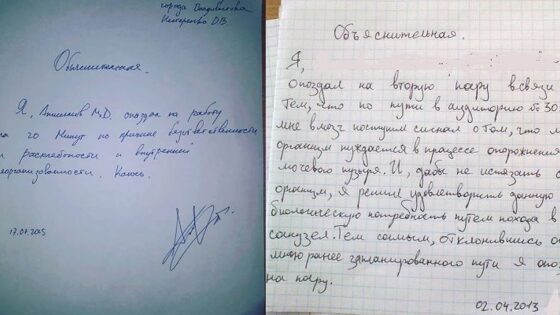 города
Объяснительная.
Я, М.Д. опоздал на работу
на 20 минут по причине безответственности
и расхлябанности и внутренней
неорганизованности. Каюсь.
17.07.2015
Объяснительная.
Я,
опоздал на вторую пару в связи
тем, что по пути в аудиторию от 30
мне в мозг поступил сигнал о том, что
организм нуждается в процессе опорожнения
мочевого пузыря. И, дабы не истязать с
организм, я решил удовлетворить данную
биологическую потребность путём похода в
санузел. Тем самым, отклонившись о
мною ранее запланированного пути я опо
на пару.
02.04.2013